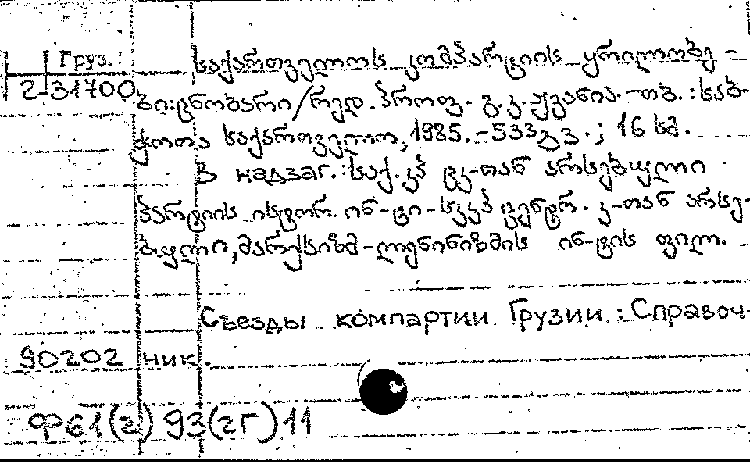 Груз.
2-31700
საქართველოს კომპარტიის ყრილობე-
ბი: ცნობარი/რედ. პროფ. გ.კ. ჟვანია.-თბ.: საბ-
ჭოთა საქართველო, 1985.-533გვ.; 16 სმ.
В надзаг.: საქ. კპ ცკ-თან არსებული
პარტიის ისტორ. ინ-ტი-სკკპ ცენტრ. კ-თან არსე-
ბული, მარქსიზმ-ლენინიზმის ინ-ტის ფილ.
Съезды компартии Грузии.: Справоч-
90202 ник.
Ф61(2) 93(2Г)11